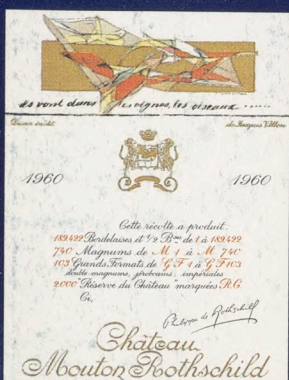 ils vont dans les vignes, les oiseaux ......
Dessin inédit de Jacques Villon
1960 1960
Cette récolte a produit
189422 Bordelaises et 1/2 Bses de 1 à 189422
740 Magnums de M 1 à M 740
103 Grands Formats de G F 1 à G F 103
double magnums, jéroboams, impériales
2000 "Réserve du Château" marquées R.C.
Ce,
Philippe de Rothschild
Château
Mouton Rothschild